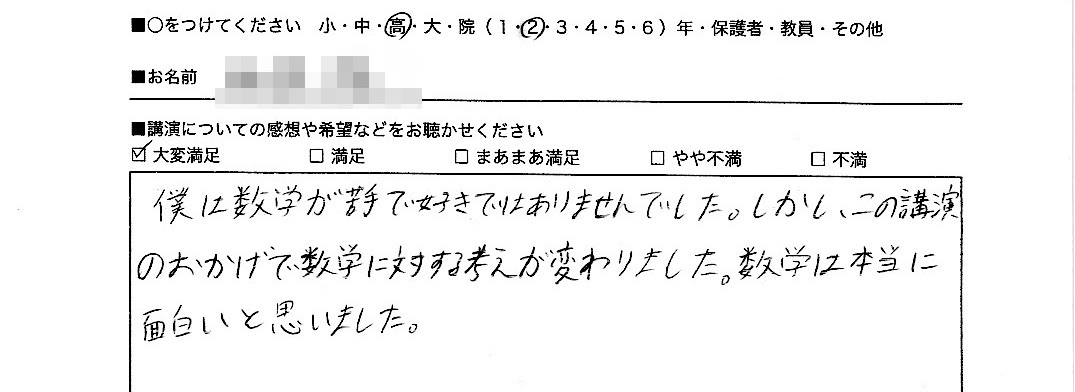 ■○をつけてください 小・中・高・大・院(1・2・3・4・5・6)年・保護者・教員・その他
■お名前
■講演についての感想や希望などをお聴かせください
☑ 大変満足 □ 満足 □ まあまあ満足 □ やや不満 □ 不満
僕は数学が苦手で好きではありませんでした。しかし、この講演
のおかげで数学に対する考えが変わりました。数学は本当に
面白いと思いました。